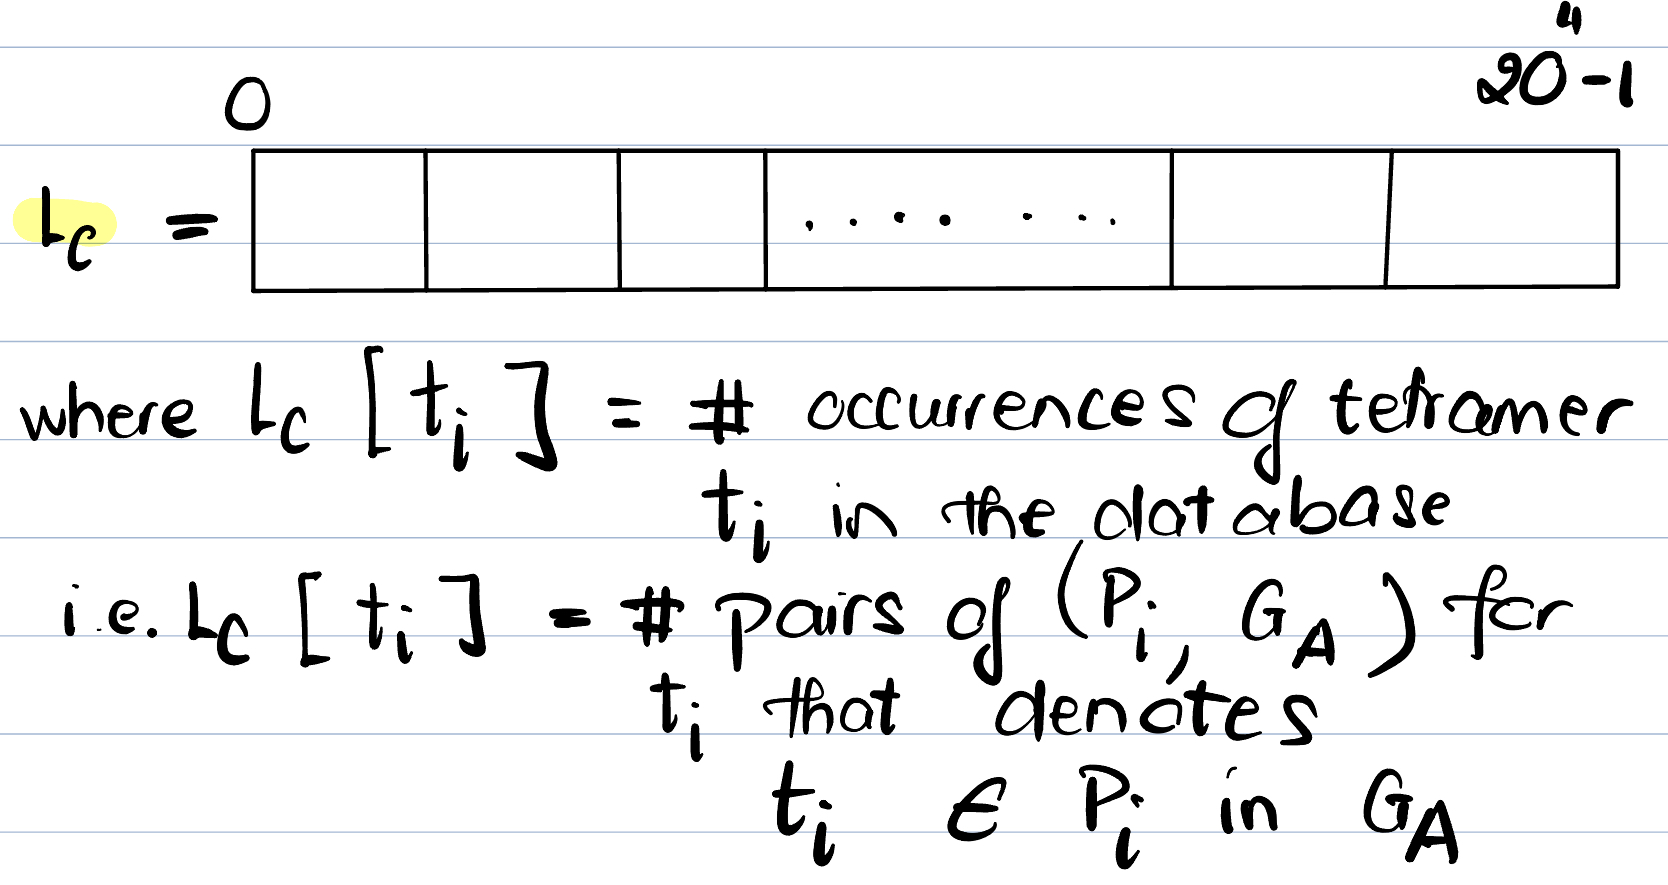 0 20⁴-1
L_c = . . . . . . .
where L_c [t_i] = # occurrences of tetramer
t_i in the database
i.e. L_c [t_i] = # pairs of (P_i, G_A) for
t_i that denotes
t_i ∈ P_i in G_A